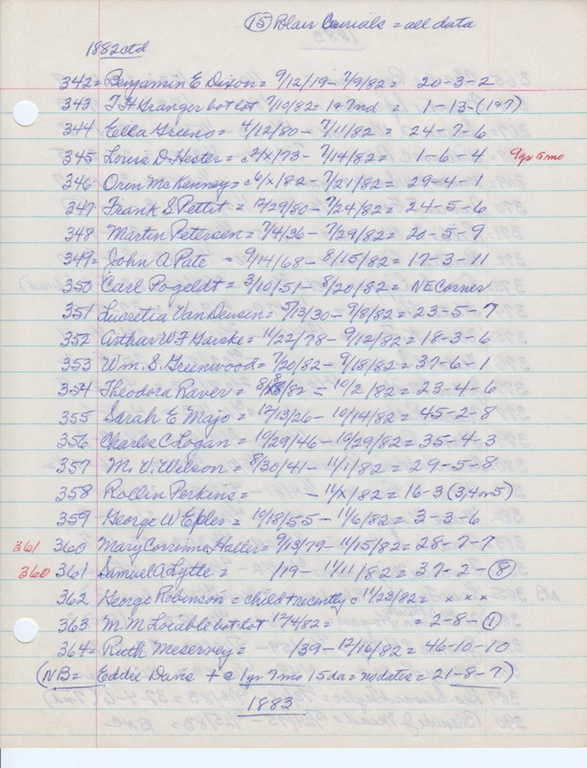 (15) Blair Burials = all data
1882 ctd
342 = Benjamin E Dixon = 9/12/19 - 7/9/82 = 20-3-2
343 J H Granger bot lot 7/10/82 = 1-13-(1&7)
344 Ella Greeno = 4/12/80 - 7/11/82 = 24-7-6
345 Louis D Hester = c 2/x/73 - 7/14/82 = 1-6-4 9 yrs 5 mo
346 Orin McKenney = c 6/x/82 - 7/21/82 = 29-4-1
347 Frank S Pettit = 12/29/80 - 7/24/82 = 24-5-6
348 Martin Petersen = 7/4/36 - 7/29/82 = 20-5-9
349 = John A Pate = 9/14/68 - 8/15/82 = 17-3-11
350 Carl Pogeldt = 3/10/51 - 8/20/82 = NE Corner
351 Lucretia Van Deusen = 5/13/30 - 9/8/82 = 23-5-7
352 Arthur W F Garske = 11/22/78 - 9/12/82 = 18-3-6
353 Wm. S. Greenwood = 7/20/82 - 9/18/82 = 37-6-1
354 Theodora Raver = 8/8/82 = 10/2/82 = 23-4-6
355 Sarah E Majo = 12/13/26 - 10/14/82 = 45-2-8
356 Charles C Logan = 10/29/46 - 10/29/82 = 35-4-3
357 M. V. Wilson = 8/30/41 - 11/1/82 = 29-5-8
358 Rollin Perkins = - 11/x/82 = 16-3 (3,4 or 5)
359 George W Epler = 10/18/55 - 11/6/82 = 3-3-6
361 360 Mary Corrinna Haller = 9/13/79 - 11/15/82 = 28-7-7
360 361 Samuel A Lytle = /19 - 11/11/82 = 37-2-(8)
362 George Robinson = child + recently c 11/23/82 = x x x
363 M. M. bot lot 12/4/82 = = 2-8-(1)
364 = Ruth Meservey = /39 - 12/16/82 = 46-10-10
(NB = Eddie Davis + @ 1 yr 7 mo 15 da = no dates = 21-8-7)
1883